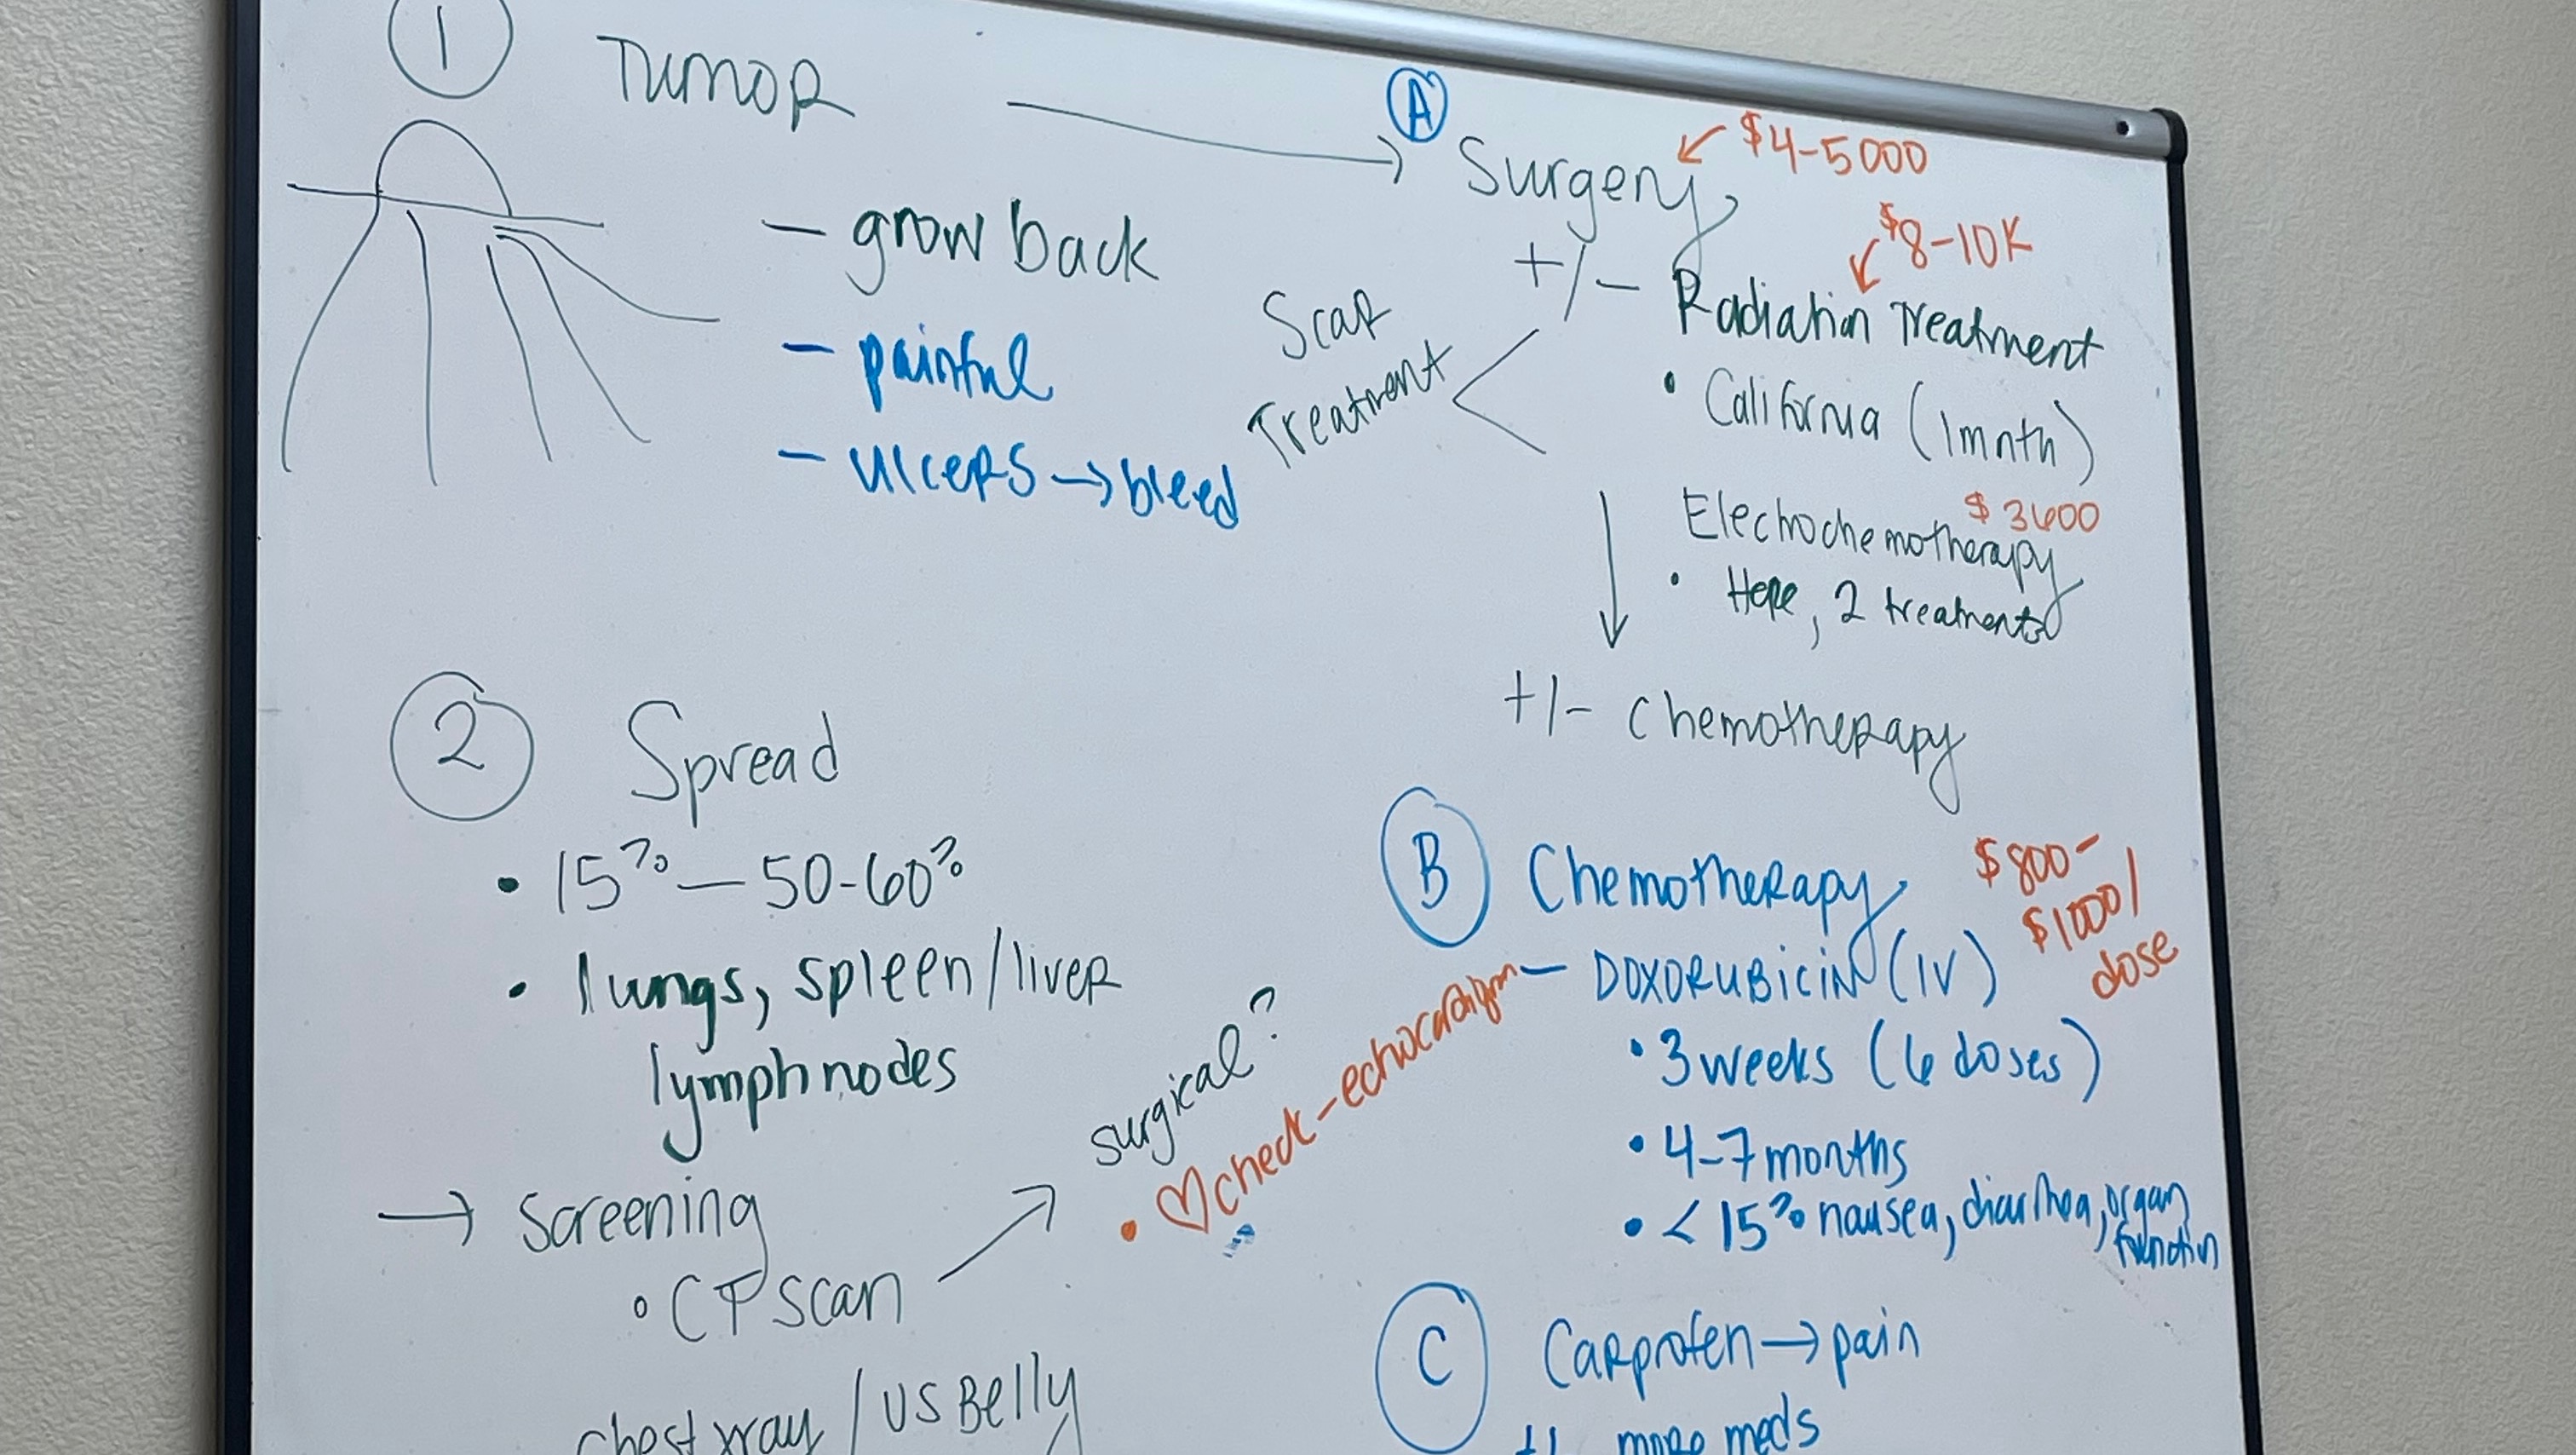 1 Tumor
- grow back
- painful
- ulcers → bleed
A Surgery
$4-5000
$8-10K
+/- Radiation Treatment
• California (1mnth)
Scar
Treatment
Electrochemotherapy
$3600
• Here, 2 treatments
+/- chemotherapy
2 Spread
• 15% — 50-60%
• lungs, spleen/liver
lymph nodes
→ screening
• CT scan
surgical?
chest xray / US Belly
B Chemotherapy
$800-
$1000/
dose
- Doxorubicin (IV)
• ♡ check - echocardiogm
• 3 weeks (6 doses)
• 4-7 months
• < 15% nausea, diarrhea, organ
function
C Carprofen → pain
more meds